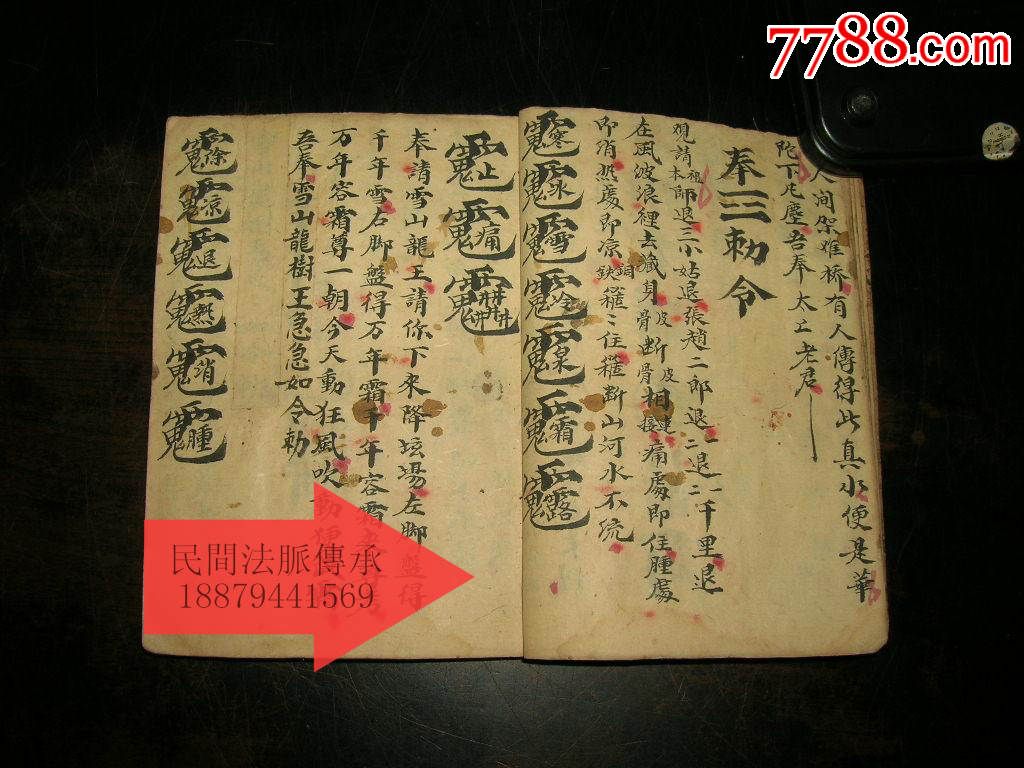 7788.com
人间架难桥有人傳得此真水便是華
陀下凡塵吾奉太上老君
奉三勅令
观請祖本師退三小姑退張趙二郎退二退一千里退
在風波浪裡去藏身皮骨断皮骨相連接痛處即住腫處
即消熱處即凉
住 断山河水不流
寒
氷
雪
冷
霜
露
止
痛
井井井井
奉請雪山龍王請你下來降坛場左脚盤得
千年雪右脚盤得万年霜千年容霜
万年容霜尊一朝今天動狂風吹動
吾奉雪山龍樹王急急如令勅
除
凉
退
熱
消
腫
民間法脈傳承
18879441569